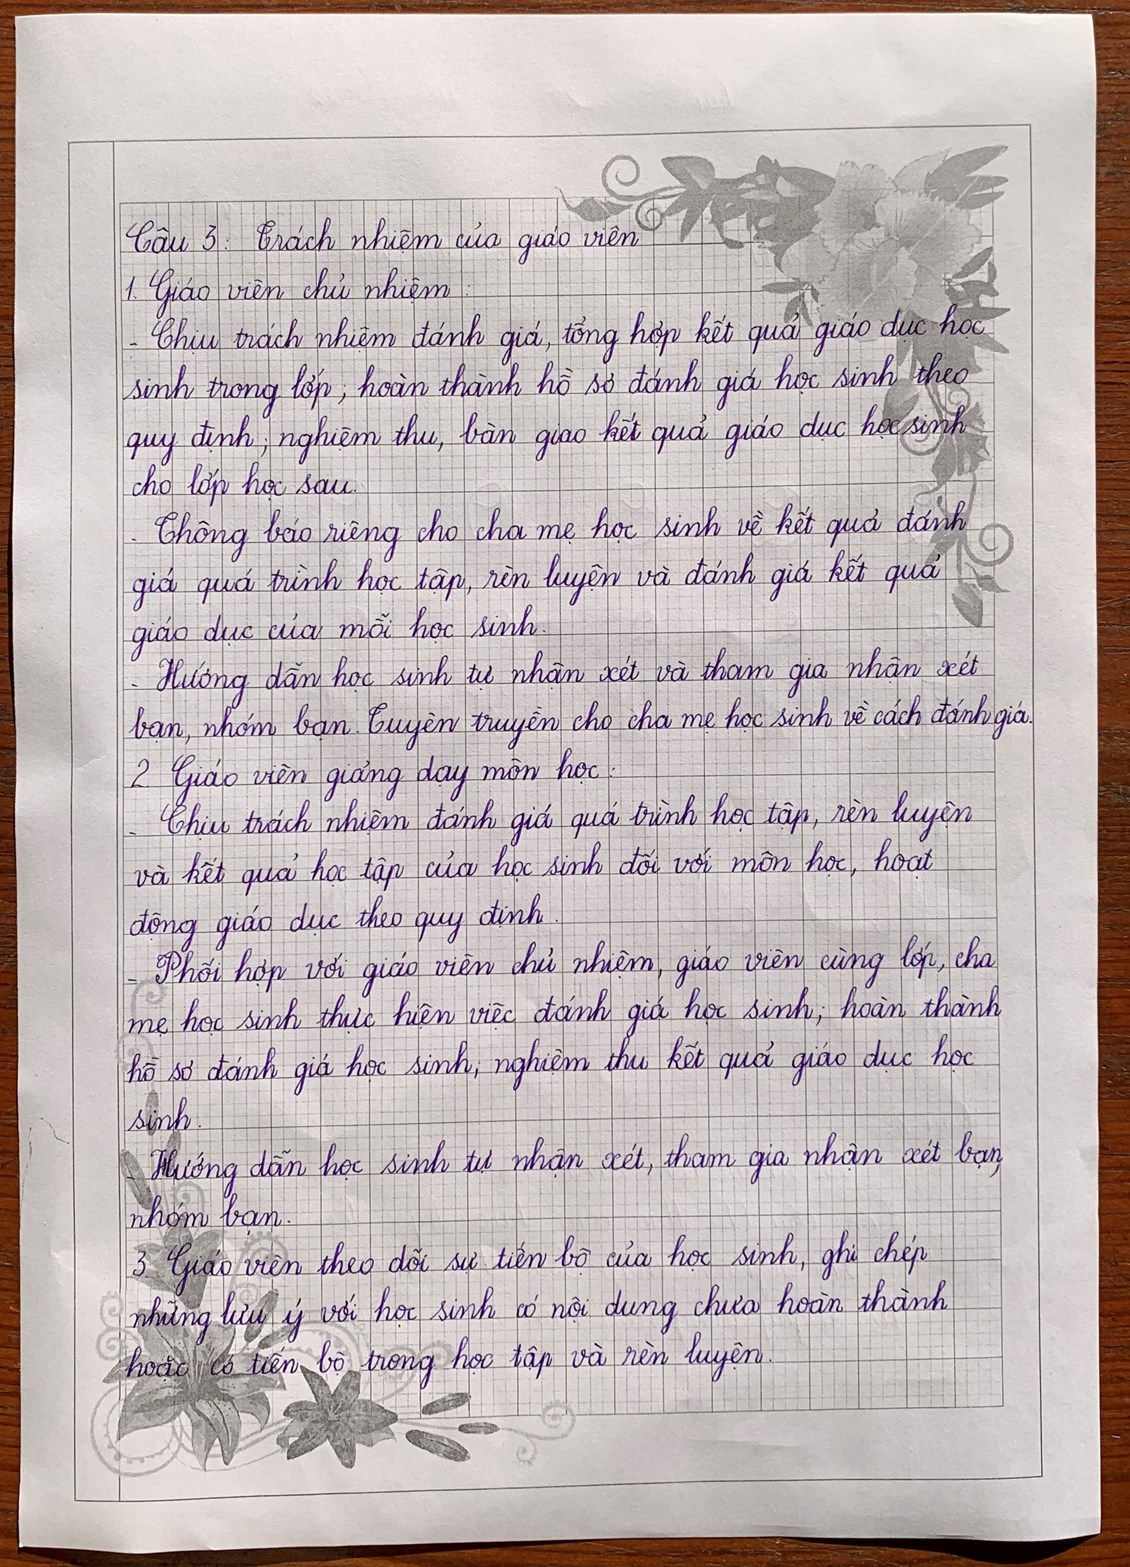 Câu 3: Trách nhiệm của giáo viên
1. Giáo viên chủ nhiệm:
- Chịu trách nhiệm đánh giá, tổng hợp kết quả giáo dục học
sinh trong lớp; hoàn thành hồ sơ đánh giá học sinh theo
quy định; nghiệm thu, bàn giao kết quả giáo dục học sinh
cho lớp học sau.
- Thông báo riêng cho cha mẹ học sinh về kết quả đánh
giá quá trình học tập, rèn luyện và đánh giá kết quả
giáo dục của mỗi học sinh.
- Hướng dẫn học sinh tự nhận xét và tham gia nhận xét
bạn, nhóm bạn. Tuyên truyền cho cha mẹ học sinh về cách đánh giá.
2 Giáo viên giảng dạy môn học:
- Chịu trách nhiệm đánh giá quá trình học tập, rèn luyện
và kết quả học tập của học sinh đối với môn học, hoạt
động giáo dục theo quy định.
- Phối hợp với giáo viên chủ nhiệm, giáo viên cùng lớp, cha
mẹ học sinh thực hiện việc đánh giá học sinh; hoàn thành
hồ sơ đánh giá học sinh; nghiệm thu kết quả giáo dục học
sinh.
- Hướng dẫn học sinh tự nhận xét, tham gia nhận xét bạn,
nhóm bạn.
3 Giáo viên theo dõi sự tiến bộ của học sinh, ghi chép
những lưu ý với học sinh có nội dung chưa hoàn thành
hoặc có tiến bộ trong học tập và rèn luyện.